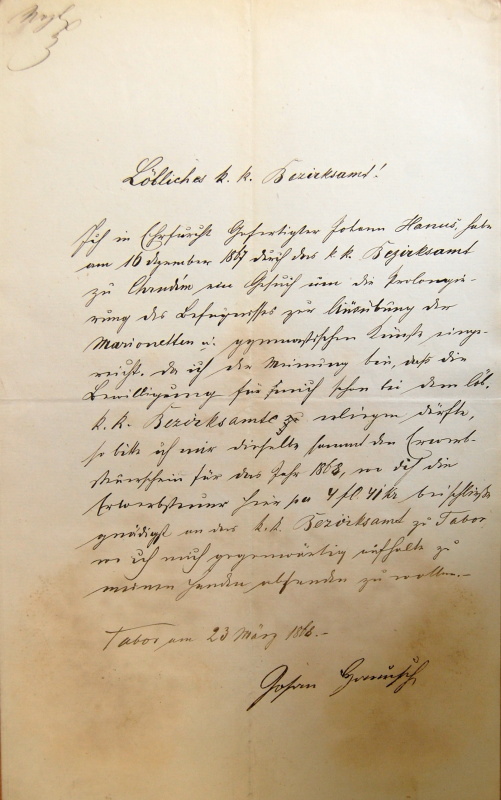 Löbliches k. k. Bezirksamt!
Ich in Ehrfurcht Gefertigter Johann Hanus, habe
am 16 Dezember 1867 durch das k. k. Bezirksamt
zu ein Gesuch um die Prolongi-
rung des Befugnisses zur Ausübung der
Marionetten u. gymnastischen Künste einge-
reicht. Da ich der Meinung bin, daß die
Bewilligung für mich schon bei dem löb.
k. k. Bezirksamte erliegen dürfte,
so bitte ich mir dieselbe sammt den Erwerb-
steuerschein für das Jahr 1868, wo ich die
Erwerbsteuer hier pr 4 fl 41 kr beischließe
gnädigst an das k. k. Bezirksamt zu Tabor,
wo ich mich gegenwärtig aufhalte zu
meinen Handen absenden zu wollen.-
Tabor am 23 März 1868.-
Johan Hanusch